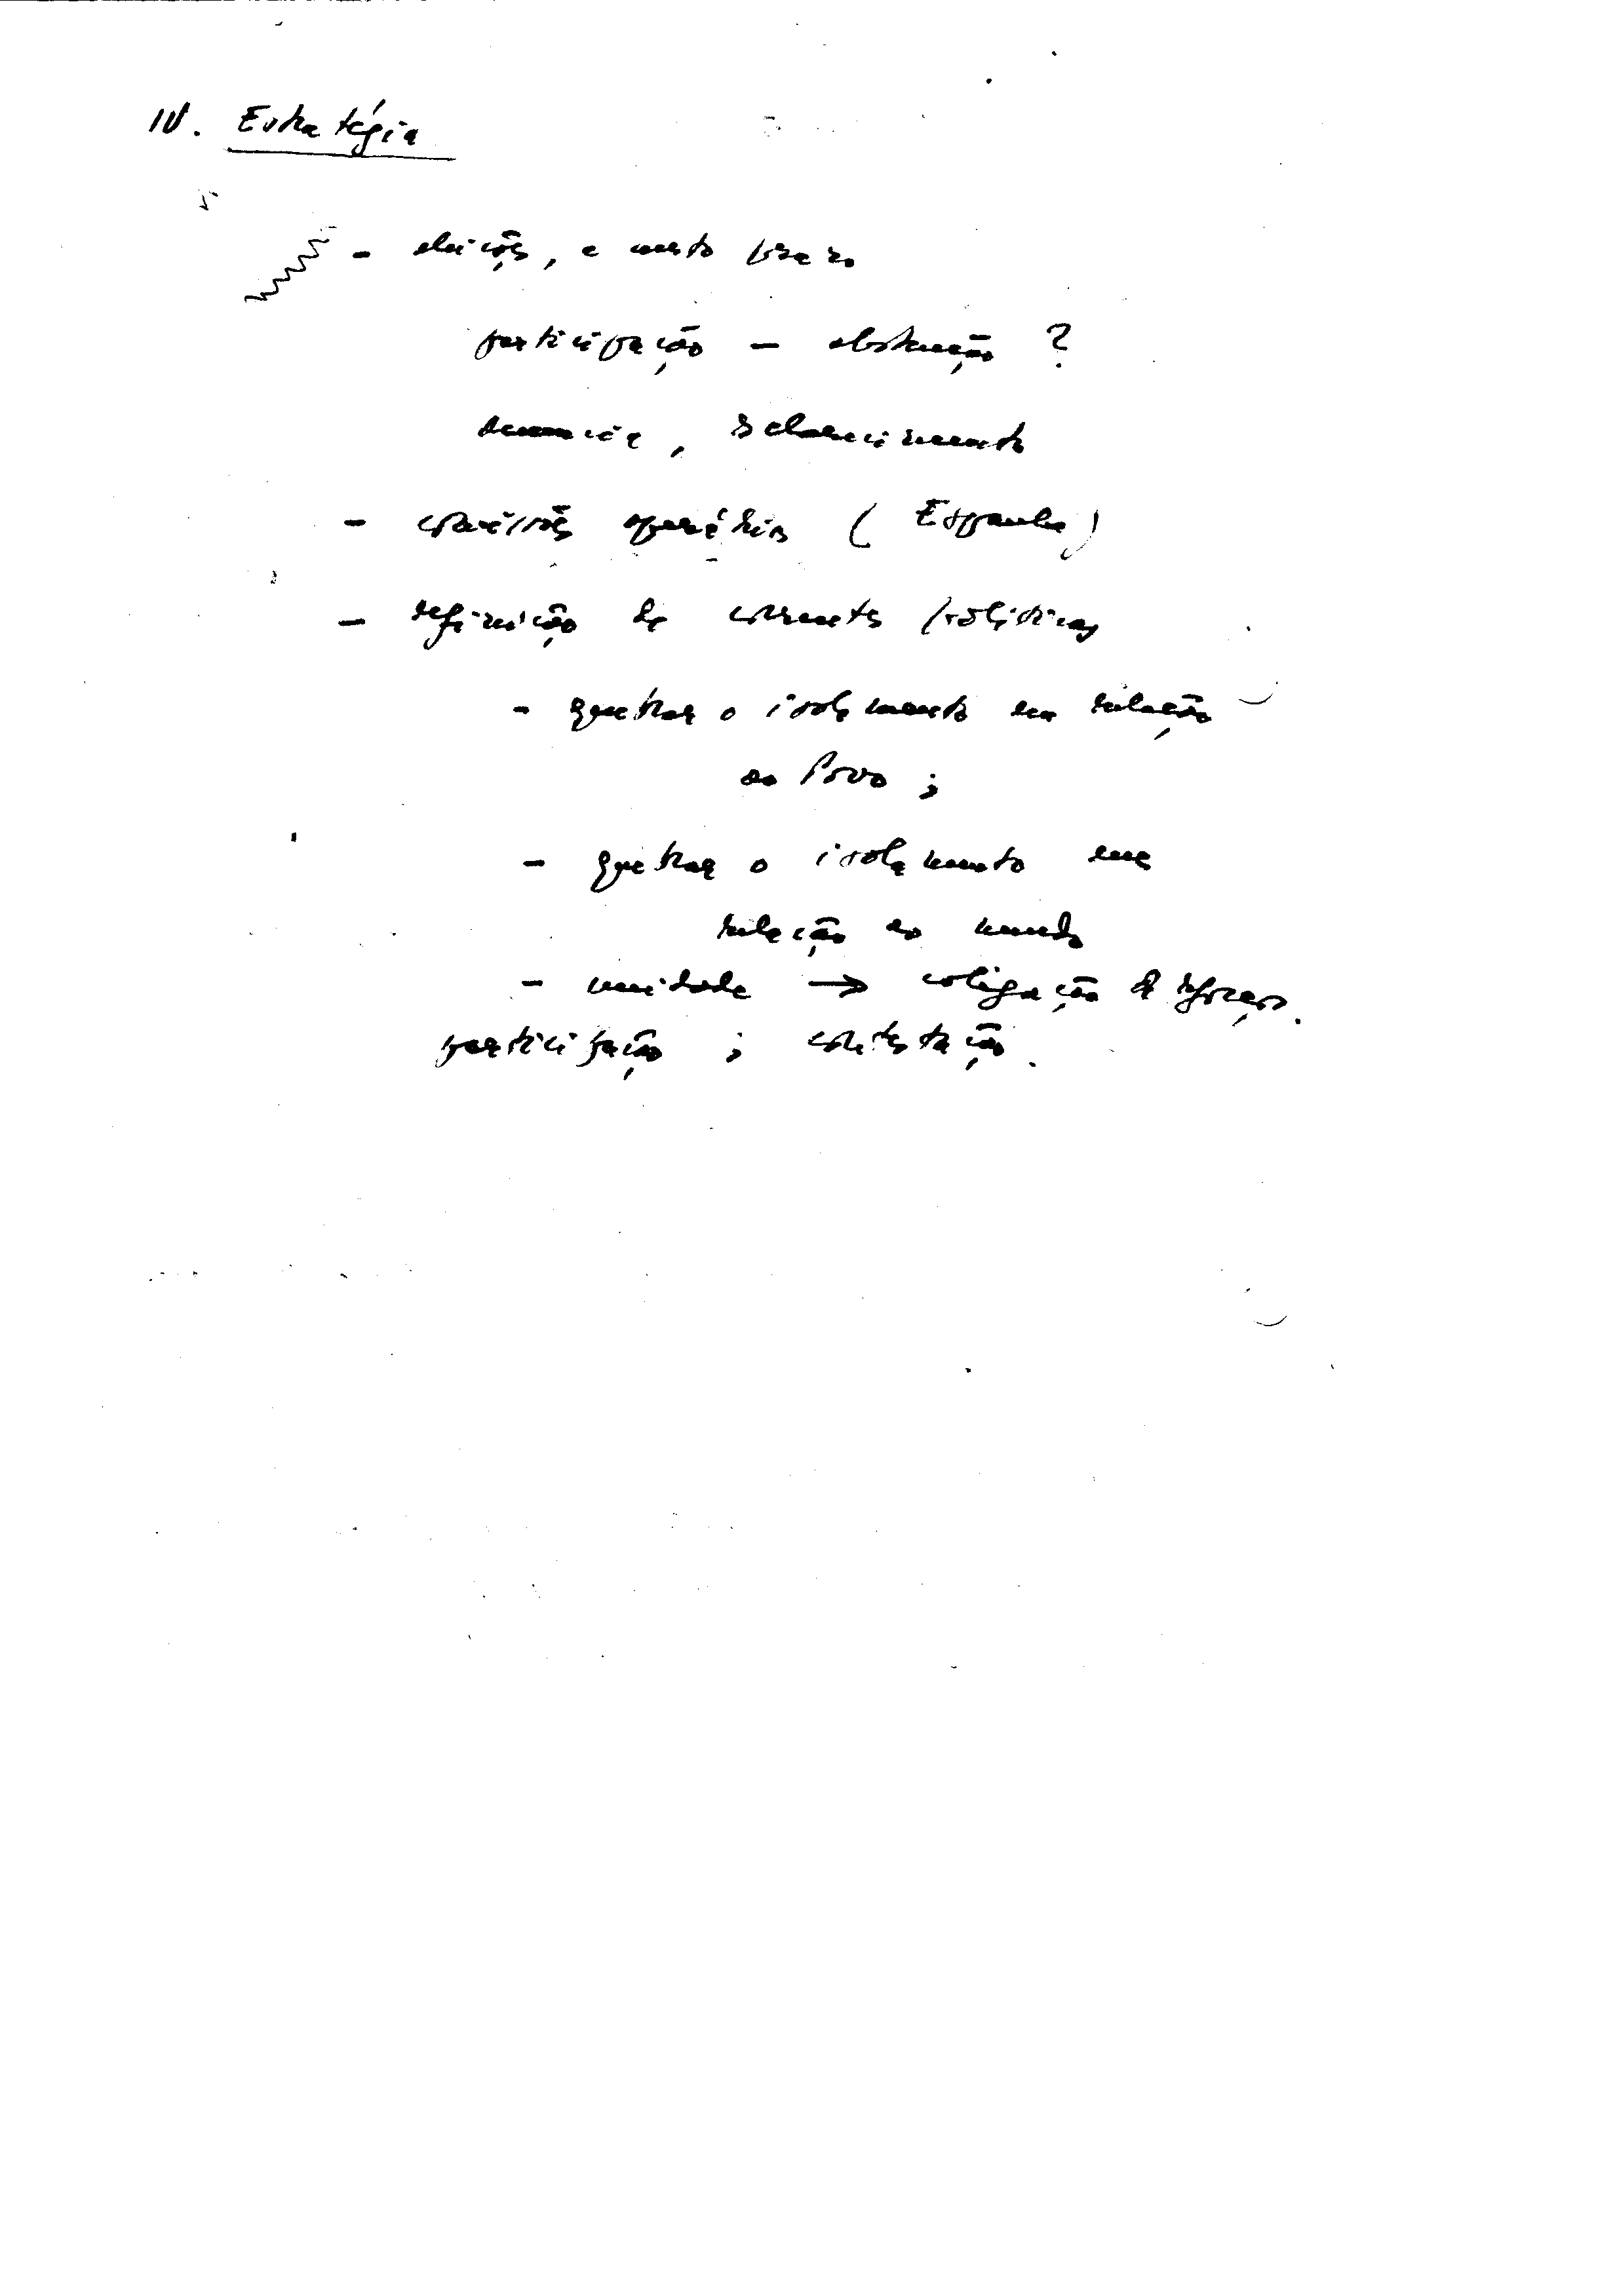 IV. Estratégia
- eleições, a curto prazo
participação - abstenção ?
denúncia, esclarecimento
- comissões operárias (Espanha)
- definição de correntes políticas
- quebrar o isolamento em relação
ao Povo ;
- quebrar o isolamento em
relação ao mundo
- unidade → coligação de esforços.
participação ; contestação.